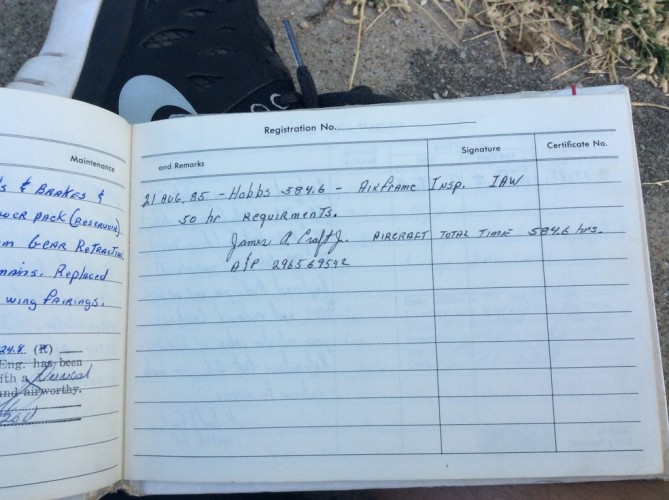 Maintenance
& BRAKES &
PACK (RESERVOIR)
GEAR RETRACTION.
Replaced
wing FAIRINGS.
24.8 (R)
Eng. has been
ith a Annual
and airworthy.
Registration No.
and Remarks
Signature
Certificate No.
21 AUG, 85 - Hobbs 584.6 - AIRFRAME INSP. IAW
50 hr REQUIRMENTS.
James A. Craft Jr. AIRCRAFT TOTAL TIME 584.6 hrs.
A&P 296569542